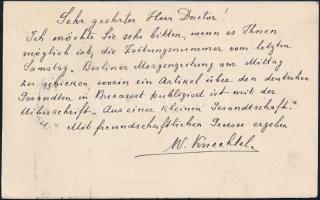 Sehr geehrter Herr Doctor!
Ich möchte Sie sehr bitten, wenn es Ihnen
möglich ist, die Zeitungsnummer vom letzten
Samstag - Berliner Morgenzeitung am Mittag
zu schicken, worin ein Artikel über den deutschen
Gesandten in Bucarest publiziert ist mit der
Ueberschrift „Aus einer kleinen Gesandtschaft."
Mit freundschaftlichem Grusse ergeben
W. Knechtel.